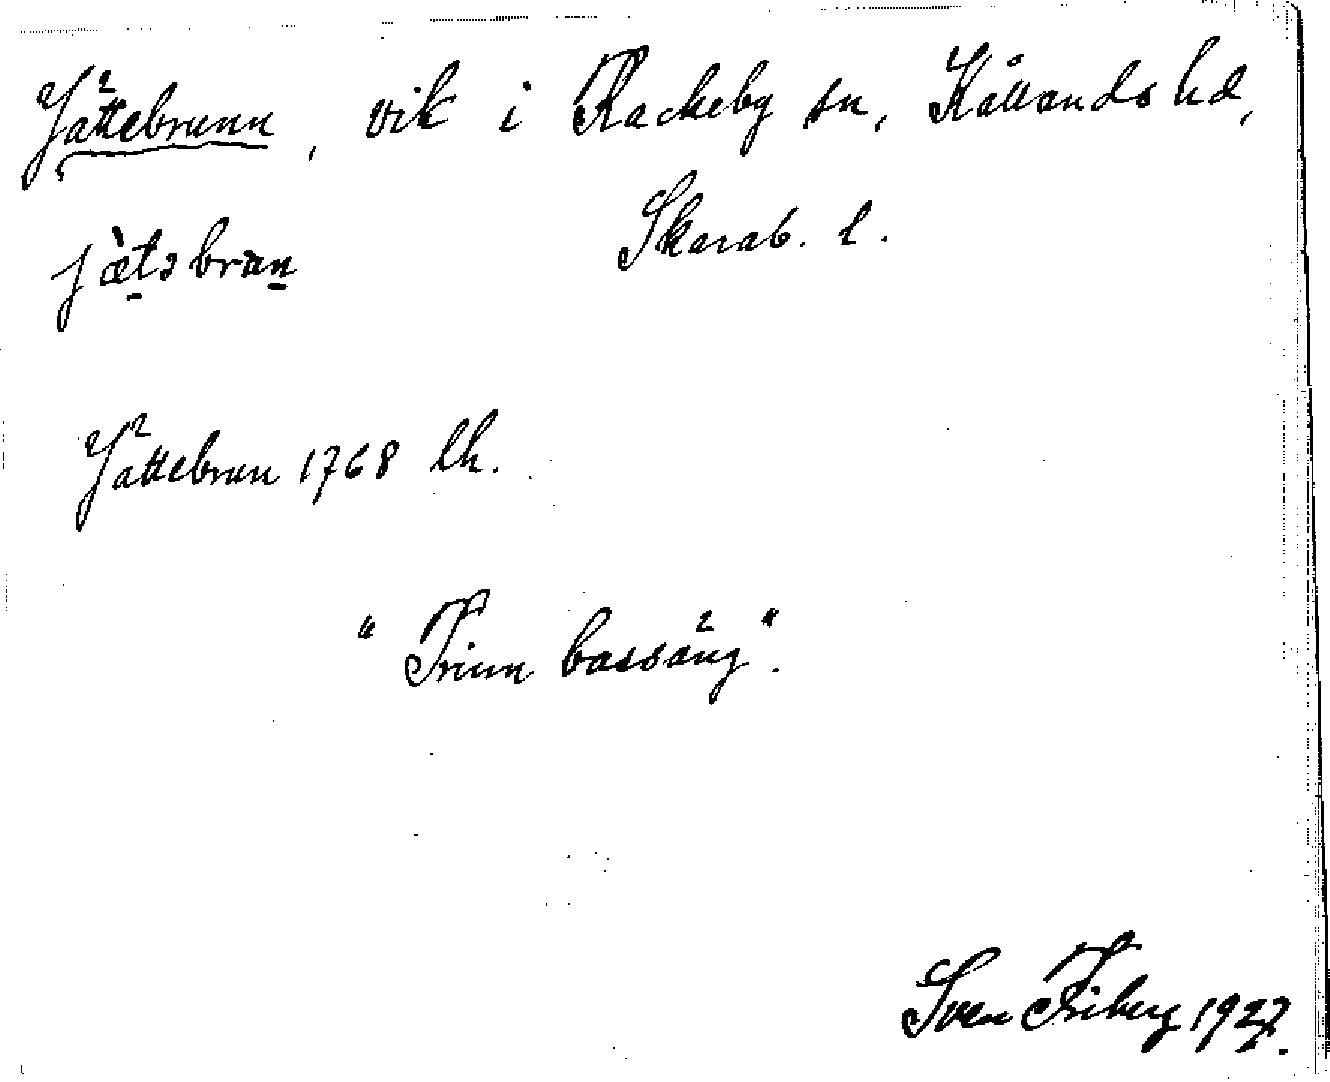 Jättebrunn, vik i Rackeby sn, Kållands hd,
Skarab. l.
jæ̀təbrøn
Jättebrun 1768 lh.
"Trinn bassäng".
Sven Friberg 1927.